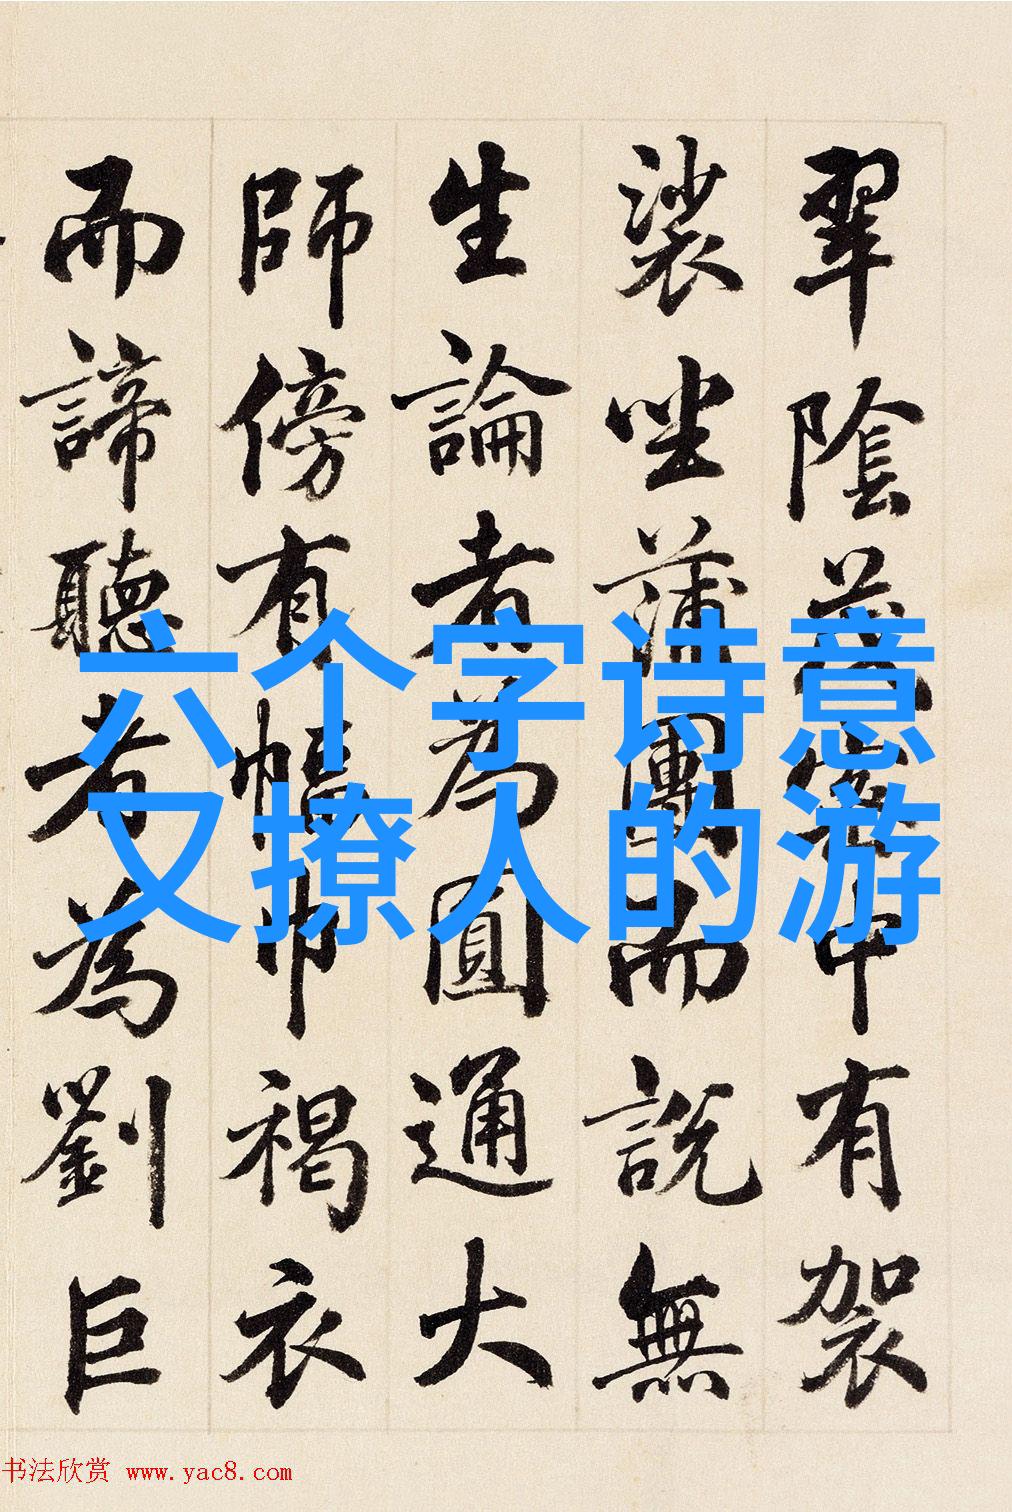 翠陰茂密中有袈
裟坐蒲團而說無
生論者為圓通大
師傍有幅巾褐衣
而諦聽者為劉巨
六个字诗意
又撩人的游
书法欣赏 www.yac8.com